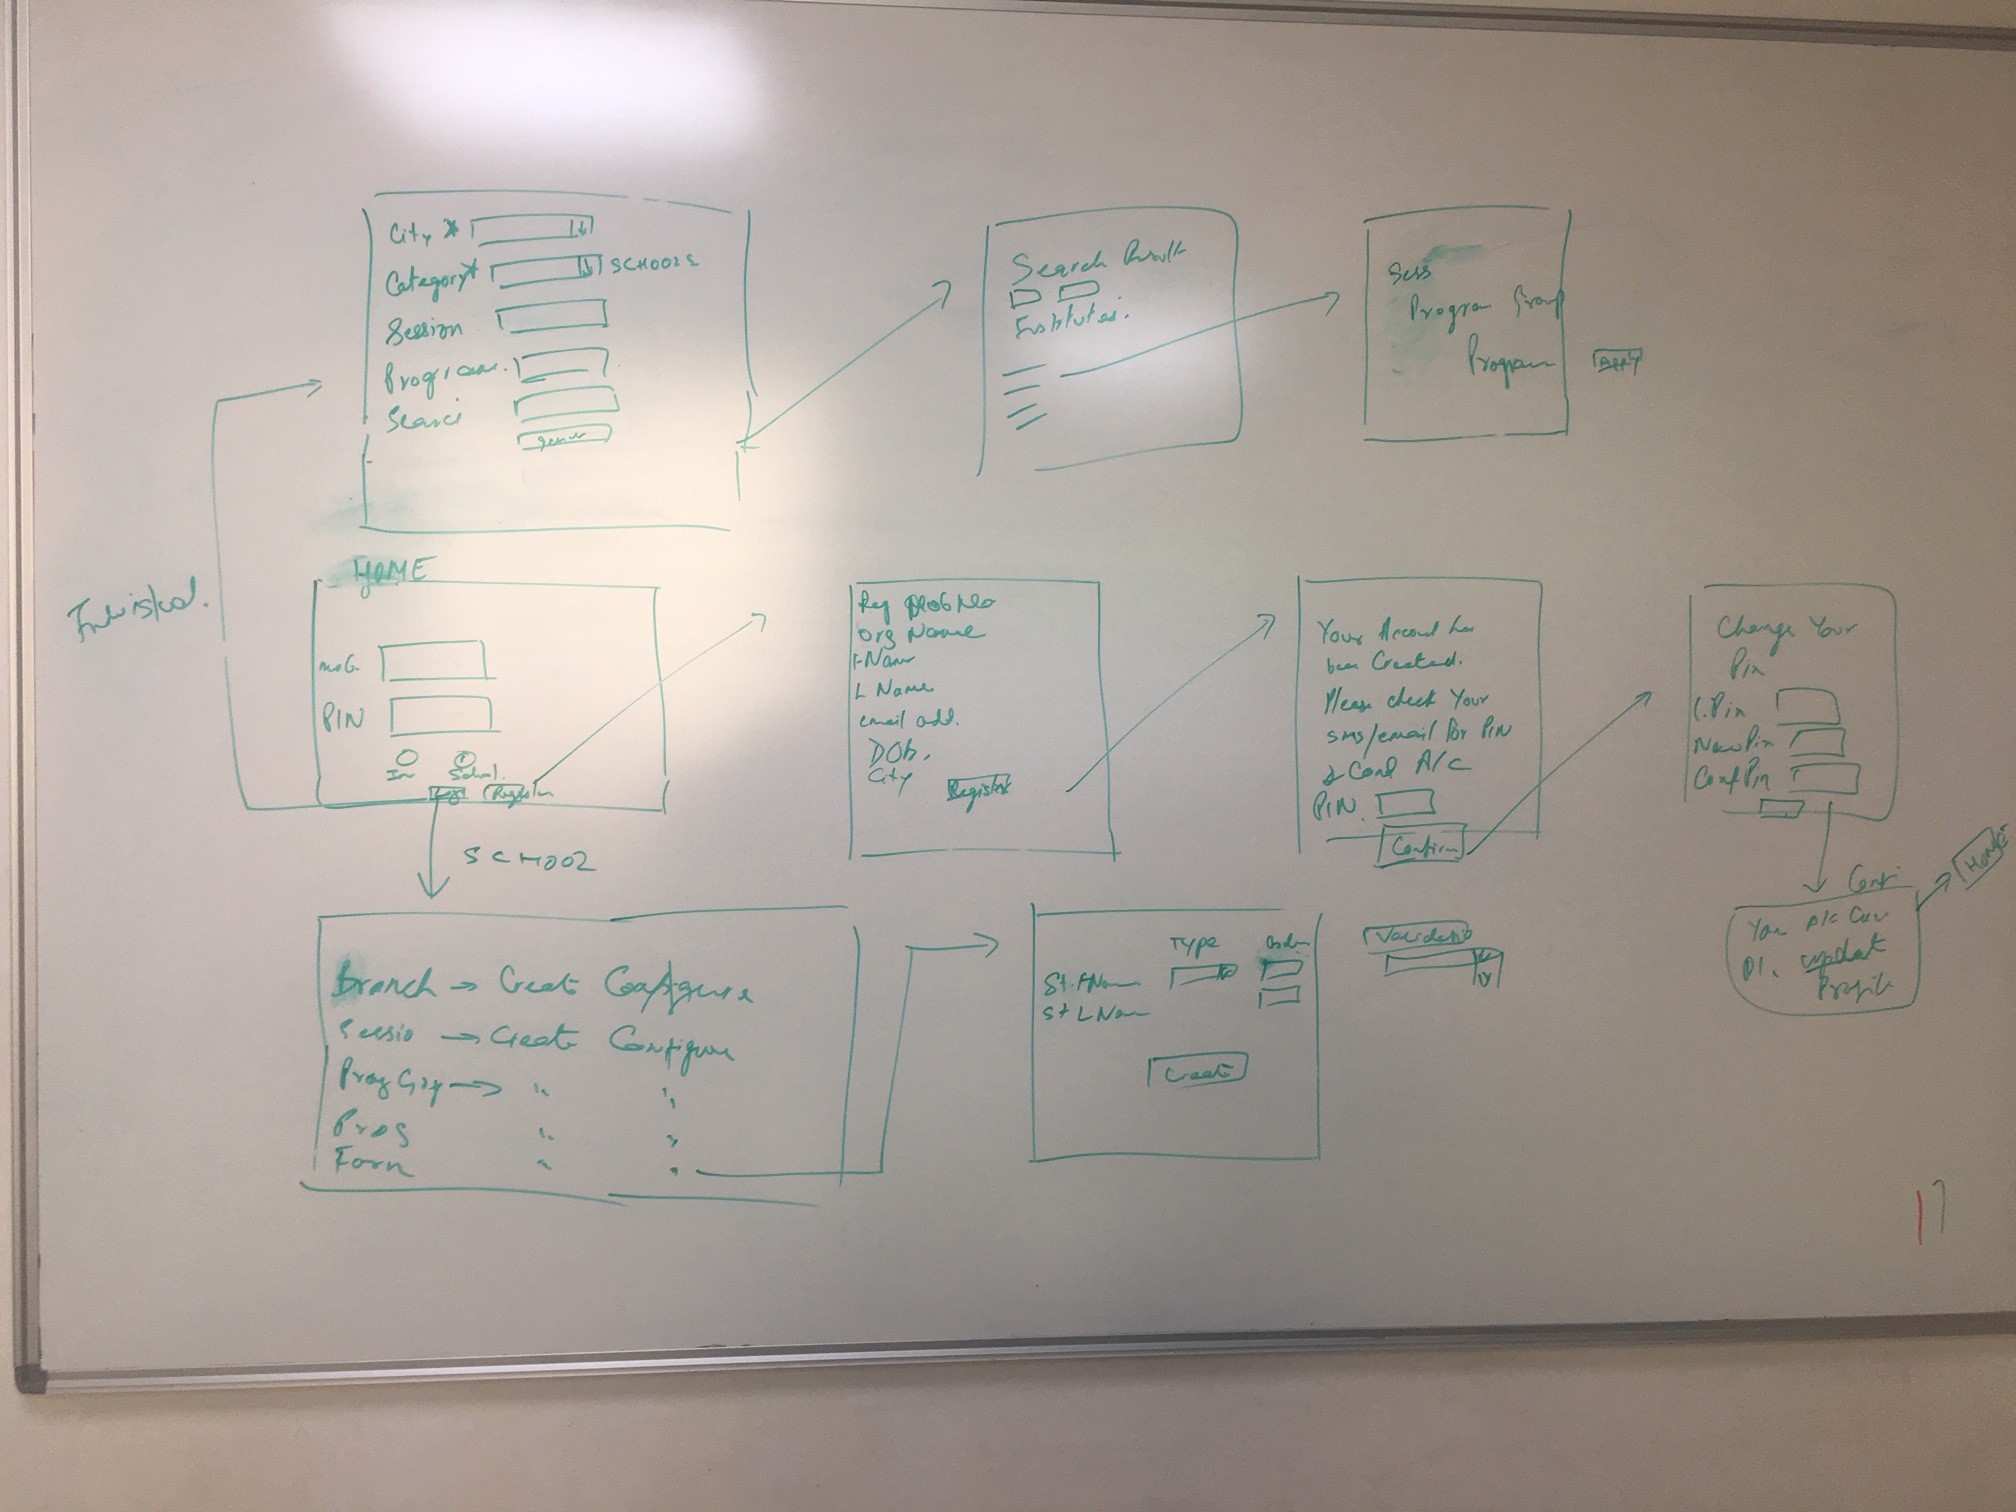 City *
Category * SCHOOLS
Session
Program
Search
Search Result
Institutes.
Sess
Program Group
Program
APPLY
HOME
mob.
PIN
In School.
Register
SCHOOL
Reg Mob No
Org Name
F Name
L Name
email add.
DOB.
City
Register
Your Account has
been Created.
Please check Your
sms/email for PIN
& Conf A/c
PIN.
Confirm
Change Your
Pin
C.Pin
New Pin
Conf Pin
Conf
You A/c Conf
Pl. update
Profile
Home
Branch → Create Configure
Sessio → Create Configure
Prog Grp → " "
Prog " "
Form " "
Type
St. F Nam
St L Nam
Create
Validatio
17